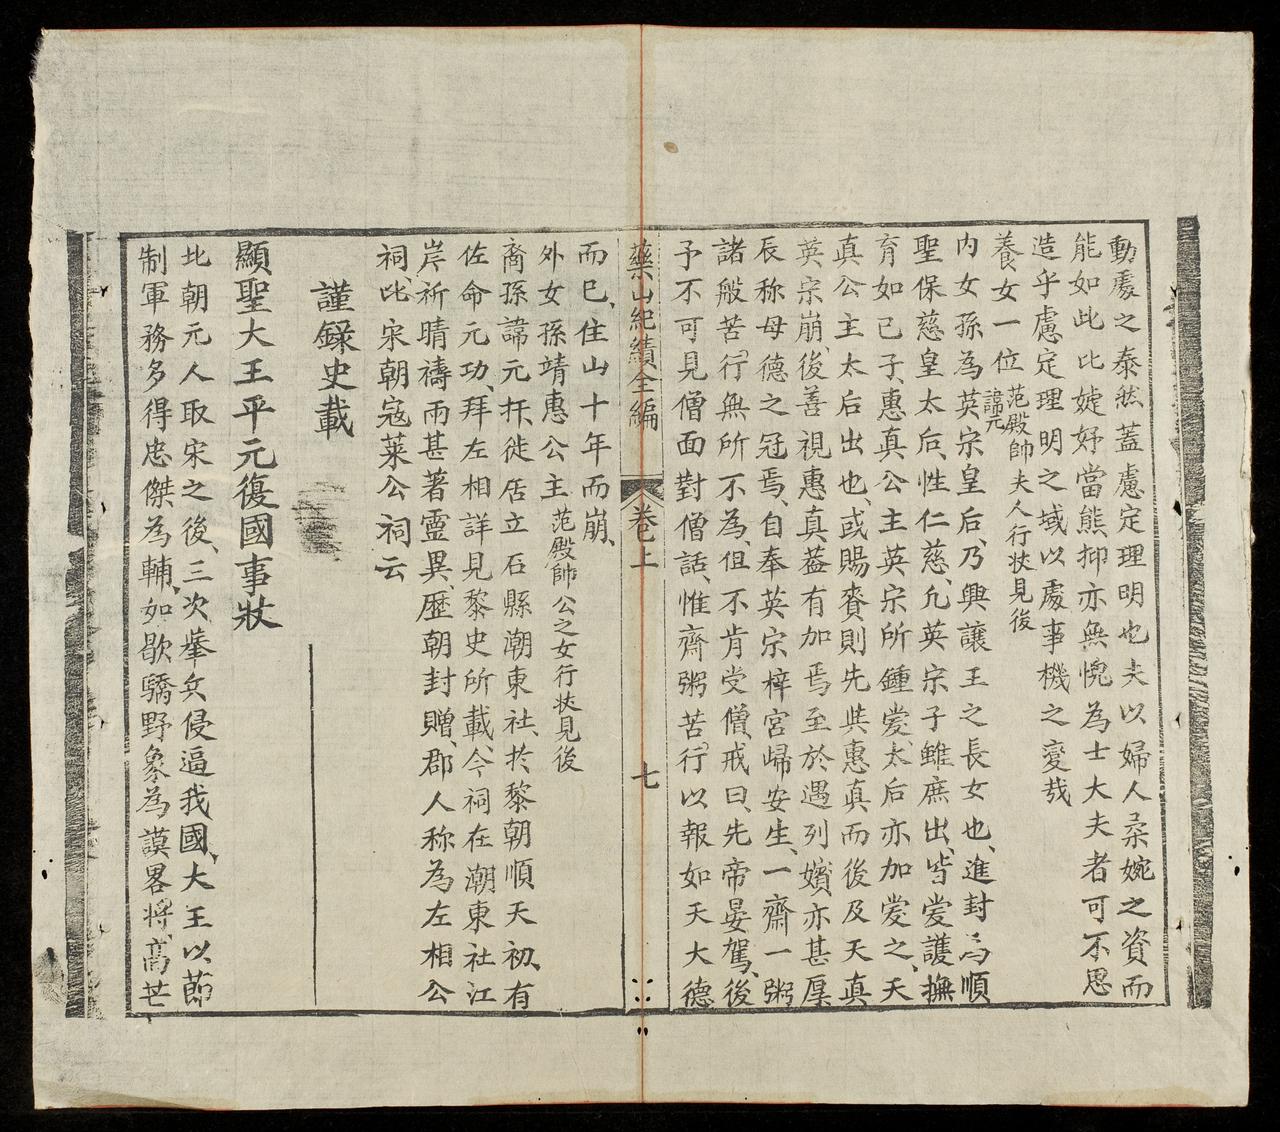 動處之泰然蓋慮定理明也夫以婦人柔婉之資而
能如此比婕妤當熊抑亦無愧為士大夫者可不思
造乎慮定理明之域以處事機之變哉
養女一位范殿帥諱元夫人行状見後
内女孫為英宗皇后乃興讓王之長女也進封為順
聖保慈皇太后性仁慈允英宗子雖庶出皆爱護撫
育如己子惠真公主英宗所鍾爱太后亦加爱之天
真公主太后出也或賜賚則先與惠真而後及天真
英宗崩後善視惠真益有加焉至於遇列嬪亦甚厚
辰称母德之冠焉自奉英宗梓宮㱕安生一齋一粥
諸般苦行無所不為但不肯受僧戒曰先帝晏駕後
予不可見僧面對僧話惟齋粥苦行以報如天大德
藥山紀績全編 卷上 七
而已住山十年而崩
外女孫靖惠公主范殿帥公之女行状見後
裔孫諱元㧲徙居立石縣潮東社於黎朝順天初有
佐命元功拜左相詳見黎史所載今祠在潮東社江
岸祈晴禱雨甚著靈異歷朝封贈郡人称為左相公
祠比宋朝寇萊公祠云
謹錄史載
顯聖大王平元復國事狀
北朝元人取宋之後三次舉兵侵逼我國大王以節
制軍務多得忠傑為輔如歇驕野象為謨畧将高芒